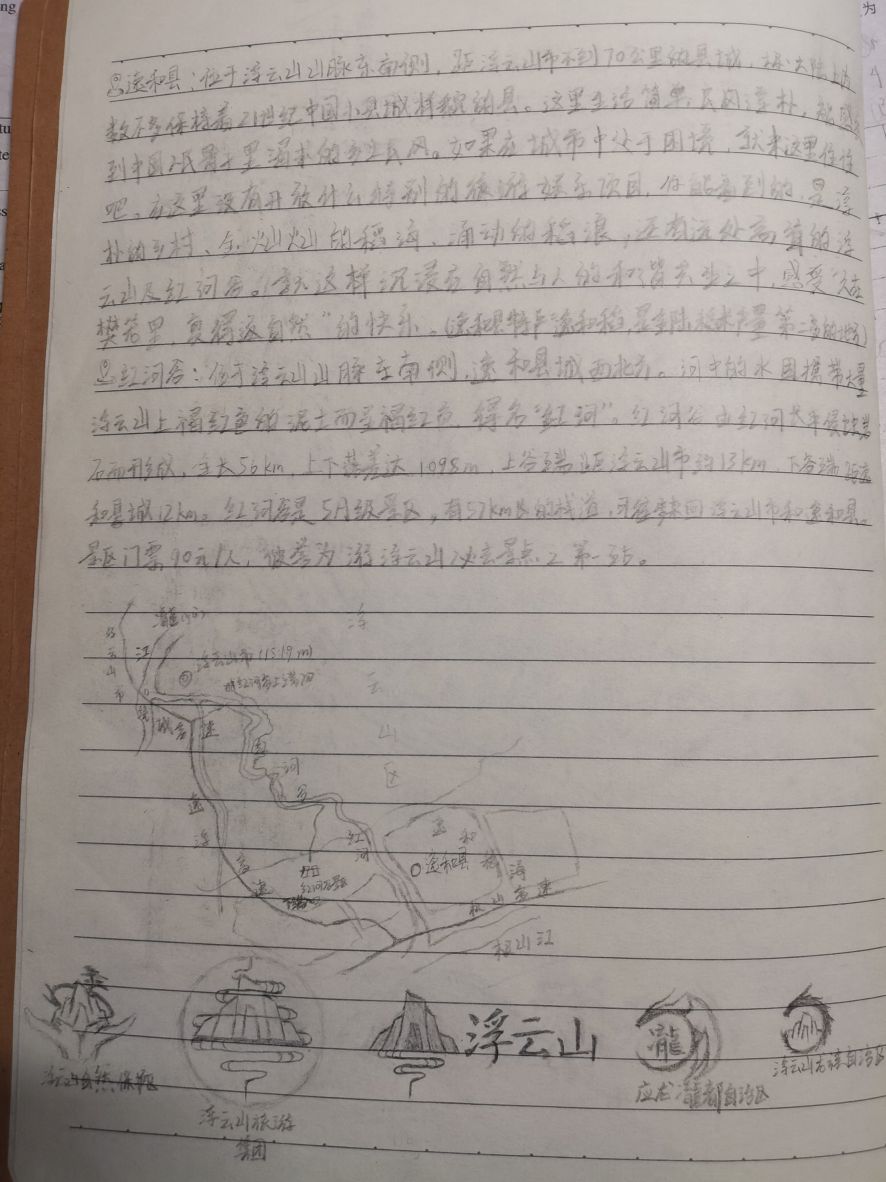 逶和县：位于浮云山山脉东南侧，距浮云山市不到70公里的县城，是大陆上为
数不多保持着21世纪中国小县城样貌的县。这里生活简单，民风淳朴，能感受
到中国人民骨子里渴求的乡土民风。如果在城市中处于困境，就来这里住住
吧。在这里没有开放什么特别的旅游娱乐项目，你能看到的，是淳
朴的乡村、金灿灿的稻海、涌动的稻浪，还有远处高耸的浮
云山及红河谷。就这样沉浸在自然与人的和谐共生之中，感受“久在
樊笼里，复得返自然”的快乐。
红河谷：位于浮云山山脉东南侧，逶和县城西北方。河中的水因携带大量
浮云山上褐红色的泥土而呈褐红色，得名“红河”。红河谷由红河长年侵蚀岩
石而形成，全长56km，上下落差达1098m，上谷端距浮云山市约13km，下谷端距逶
和县城12km。红河谷是5A级景区，有57km长的栈道，可往来回浮云山市和逶和县。
景区门票90元/人，被誉为游浮云山必去景点之第一站。
浮云山市(1519m)
红河谷上端口
江
浮云山区
城高速
逶浮高速
河谷
红河
红河谷景区
逶和稻海
逶和县
高速
山江
浮云山
瀧
浮云山自然保护区
浮云山旅游
集团
应龙瀧都自治区
浮云山市 自治区